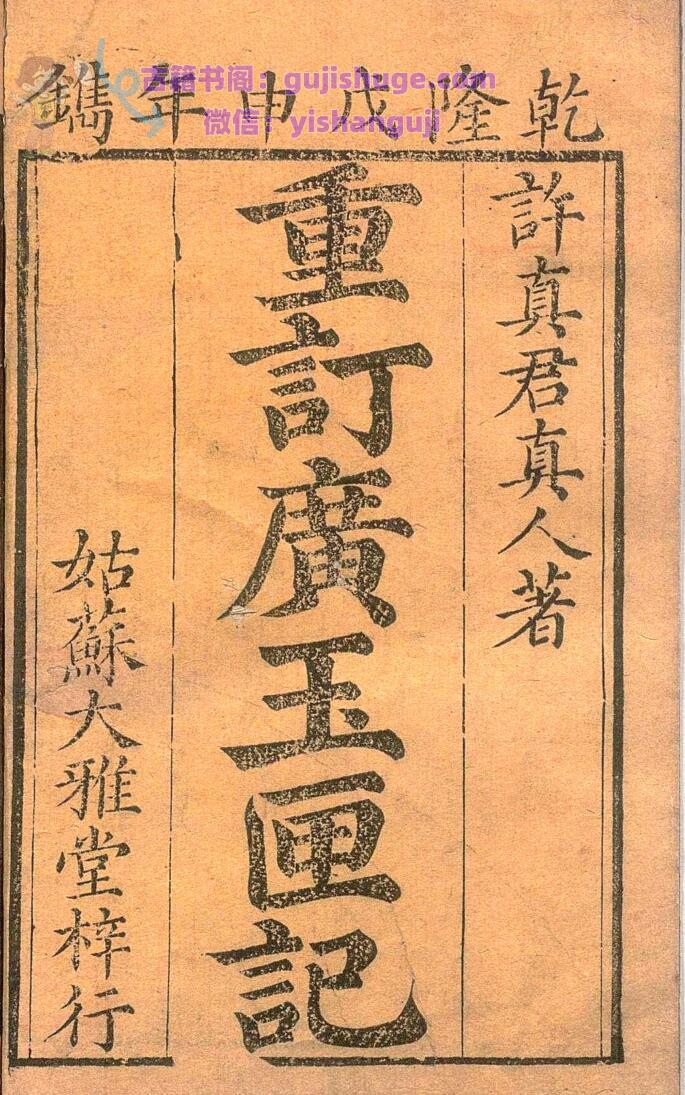 乾隆戊申年鐫
許真君真人著
重訂廣玉匣記
姑蘇大雅堂梓行
古籍书阁：gujishuge.com
微信：yishanguji